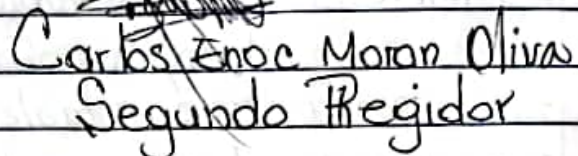 Carlos Enoc Moran Oliva
Segundo Regidor